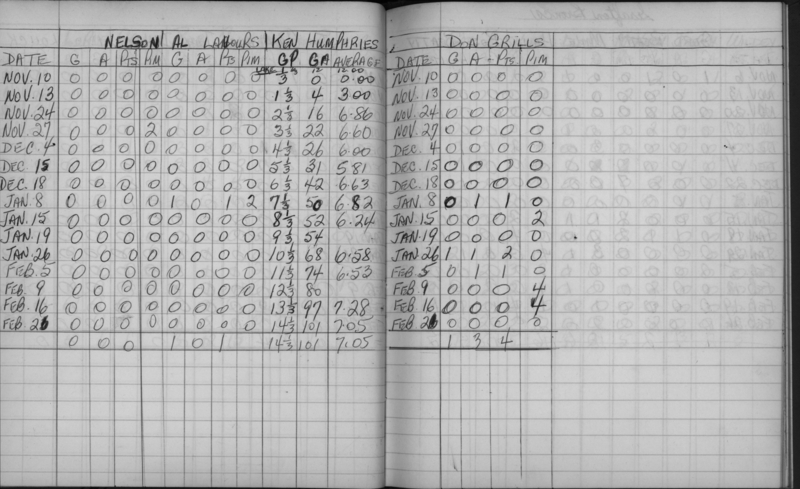 NELSON AL LABOURS KEN HUMPHRIES
DATE G A Pts Pim G A Pts Pim GP GA AVERAGE
NOV. 10 0 0 0 0 0 0 0 0 1/3 0 0.00
NOV. 13 0 0 0 0 0 0 0 0 1 1/3 4 3.00
NOV. 24 0 0 0 0 0 0 0 0 2 1/3 16 6.86
NOV. 27 0 0 0 2 0 0 0 0 3 1/3 22 6.60
DEC. 4 0 0 0 0 0 0 0 0 4 1/3 26 6.00
DEC. 15 0 0 0 0 0 0 0 0 5 1/3 31 5.81
DEC. 18 0 0 0 0 0 0 0 0 6 1/3 42 6.63
JAN. 8 0 0 0 0 1 0 1 2 7 1/3 50 6.82
JAN. 15 0 0 0 0 0 0 0 0 8 1/3 52 6.24
JAN. 19 0 0 0 0 0 0 0 0 9 1/3 54
JAN. 26 0 0 0 0 0 0 0 0 10 1/3 68 6.58
FEB. 5 0 0 0 0 0 0 0 0 11 1/3 74 6.53
FEB. 9 0 0 0 0 0 0 0 0 12 1/3 80
FEB. 16 0 0 0 0 0 0 0 0 13 1/3 97 7.28
FEB. 26 0 0 0 0 0 0 0 0 14 1/3 101 7.05
0 0 0 1 0 1 14 1/3 101 7.05
DON GRILLS
DATE G A Pts Pim
NOV. 10 0 0 0 0
NOV. 13 0 0 0 0
NOV. 24 0 0 0 0
NOV. 27 0 0 0 0
DEC. 4 0 0 0 0
DEC. 15 0 0 0 0
DEC. 18 0 0 0 0
JAN. 8 0 1 1 0
JAN. 15 0 0 0 2
JAN. 19 0 0 0 0
JAN. 26 1 1 2 0
FEB. 5 0 1 1 0
FEB. 9 0 0 0 4
FEB. 16 0 0 0 4
FEB. 26 0 0 0 0
1 3 4